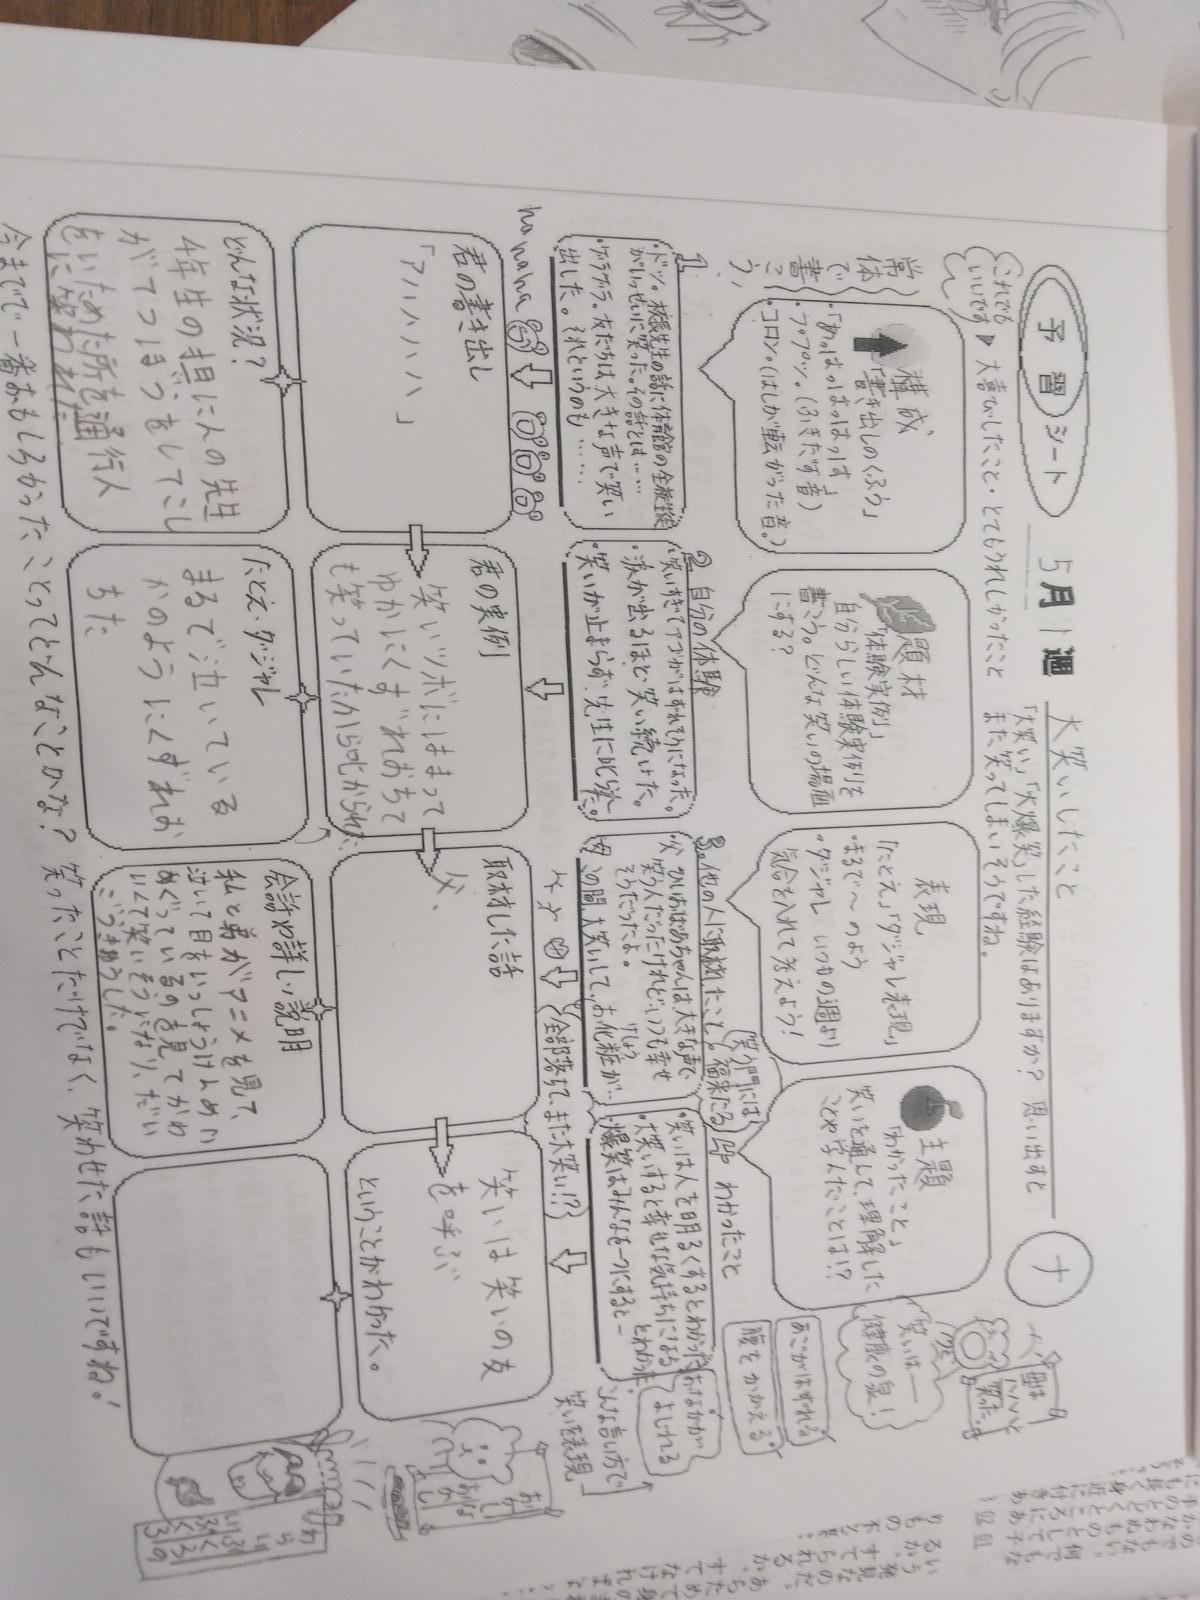 予習シート
5月1週
大笑いしたこと
ナ
これでも
いいです
▶大喜びしたこと・とてもうれしかったこと
「大笑い」「大爆笑」した経験はありますか？思い出すと
また笑ってしまいそうですね。
常体で書こう
構成
「書き出しのくふう」
・「あっはっはっはっは」
・プププッ。(ふきだす音)
・コロン。(はしが転がった音。)
題材
「体験実例」
自分らしい体験実例を
書こう。どんな笑いの場面
にする？
表現
「たとえ」「ダジャレ表現」
・まるで〜のよう
・ダジャレ いつもの週より
気合を入れて考えよう！
主題
「わかったこと」
笑いを通して、理解した
ことや、学んだことは!?
1
・ドッ。校長先生の話に体育館の全校生徒
がいっせいに笑った。その話とは……
・ゲラゲラ。友だちは大きな声で笑い
出した。それというのも……
2 自分の体験
・笑いすぎてアゴがはずれそうになった。
・涙が出るほど、笑い続けた。
・笑いが止まらず、先生に叱られた。
3. 他の人に取材したこと。
父 ひいおばあちゃんは大きな声で
笑う人だったけれど、いつも幸せ
そうだったよ。
母 この間、大笑いして、お化粧が…
けしょう
全部落ちて、また大笑い!?
笑う門には
福来たる
わかったこと
・笑いは人を明るくするとわかった
・大笑いすると幸せな気持ちになる
とわかった
・爆笑はみんなを一つにすると―
hahaha
君の書き出し
「アハハハハ」
君の実例
笑いツボにはまって
ゆかにくずれおちて
も笑っていたから叱られた
取材した話
父、
笑いは笑いの友
を呼ぶ
ということがわかった。
どんな状況？
4年生の担にんの先生
がてつぼうをしてこし
をいためた所を通行人
に笑われた
たとえ・ダジャレ
まるで泣いている
かのようにくずれお
ちた
会話や詳しい説明
私と弟がアニメを見て、
泣いて目をいっしょうけんめい
ぬぐっているのを見てかわ
いくて笑いそうになり、だい
ごうきゅうした。
今までで一番おもしろかったことってどんなことかな？ 笑ったことだけでなく、笑わせた話もいいですね！
笑いは―
健康の泉！
あごがはずれる
腹をかかえる
おなかが
よじれる
こんな言い方で
笑いを表現